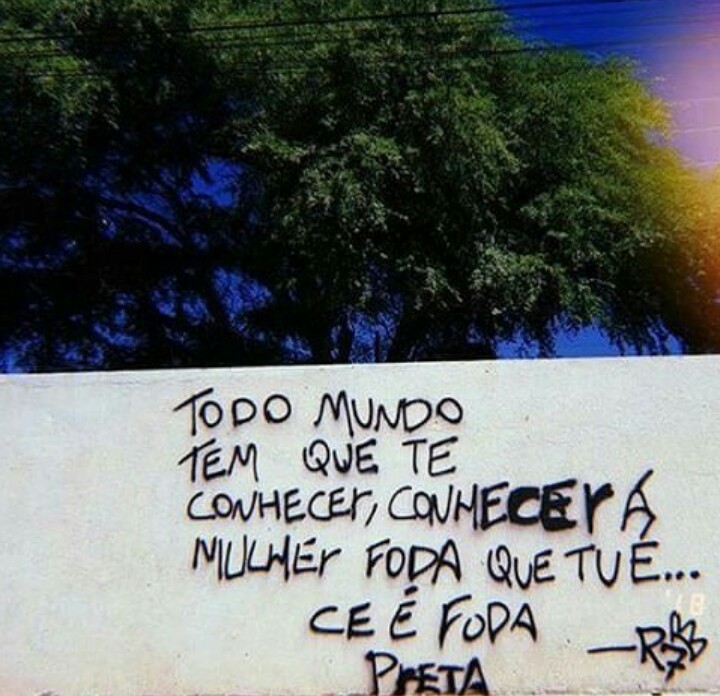 TODO MUNDO
TEM QUE TE
CONHECER, CONHECER A
MULHER FODA QUE TU É...
CE É FODA
PRETA
'18